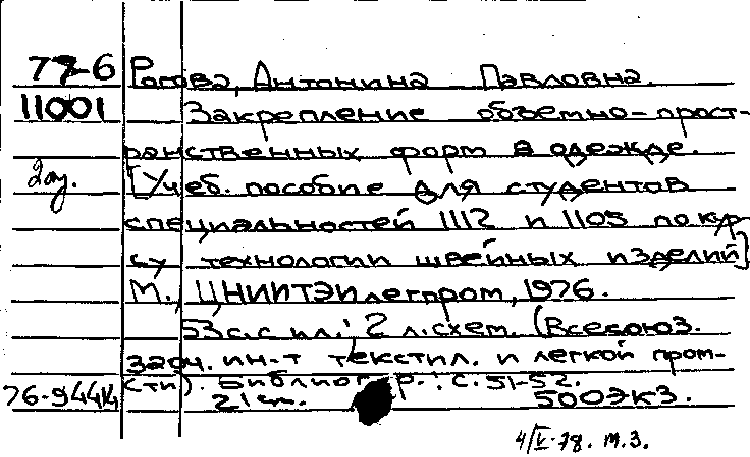 77-6 Рогова, Антонина Павловна.
11001 Закрепление объемно-прост-
ранственных форм в одежде.
2оу. [Учеб. пособие для студентов
специальностей 1112 и 1105 по кур
су технологии швейных изделий]
М., ЦНИИТЭИлегпром, 1976.
53 с. с ил.; 2 л. схем. (Всесоюз.
заоч. ин-т текстил. и легкой пром-
сти). Библиогр.: с. 51-52.
76-9444 21 см. 500 экз.
4/V-78. м.з.